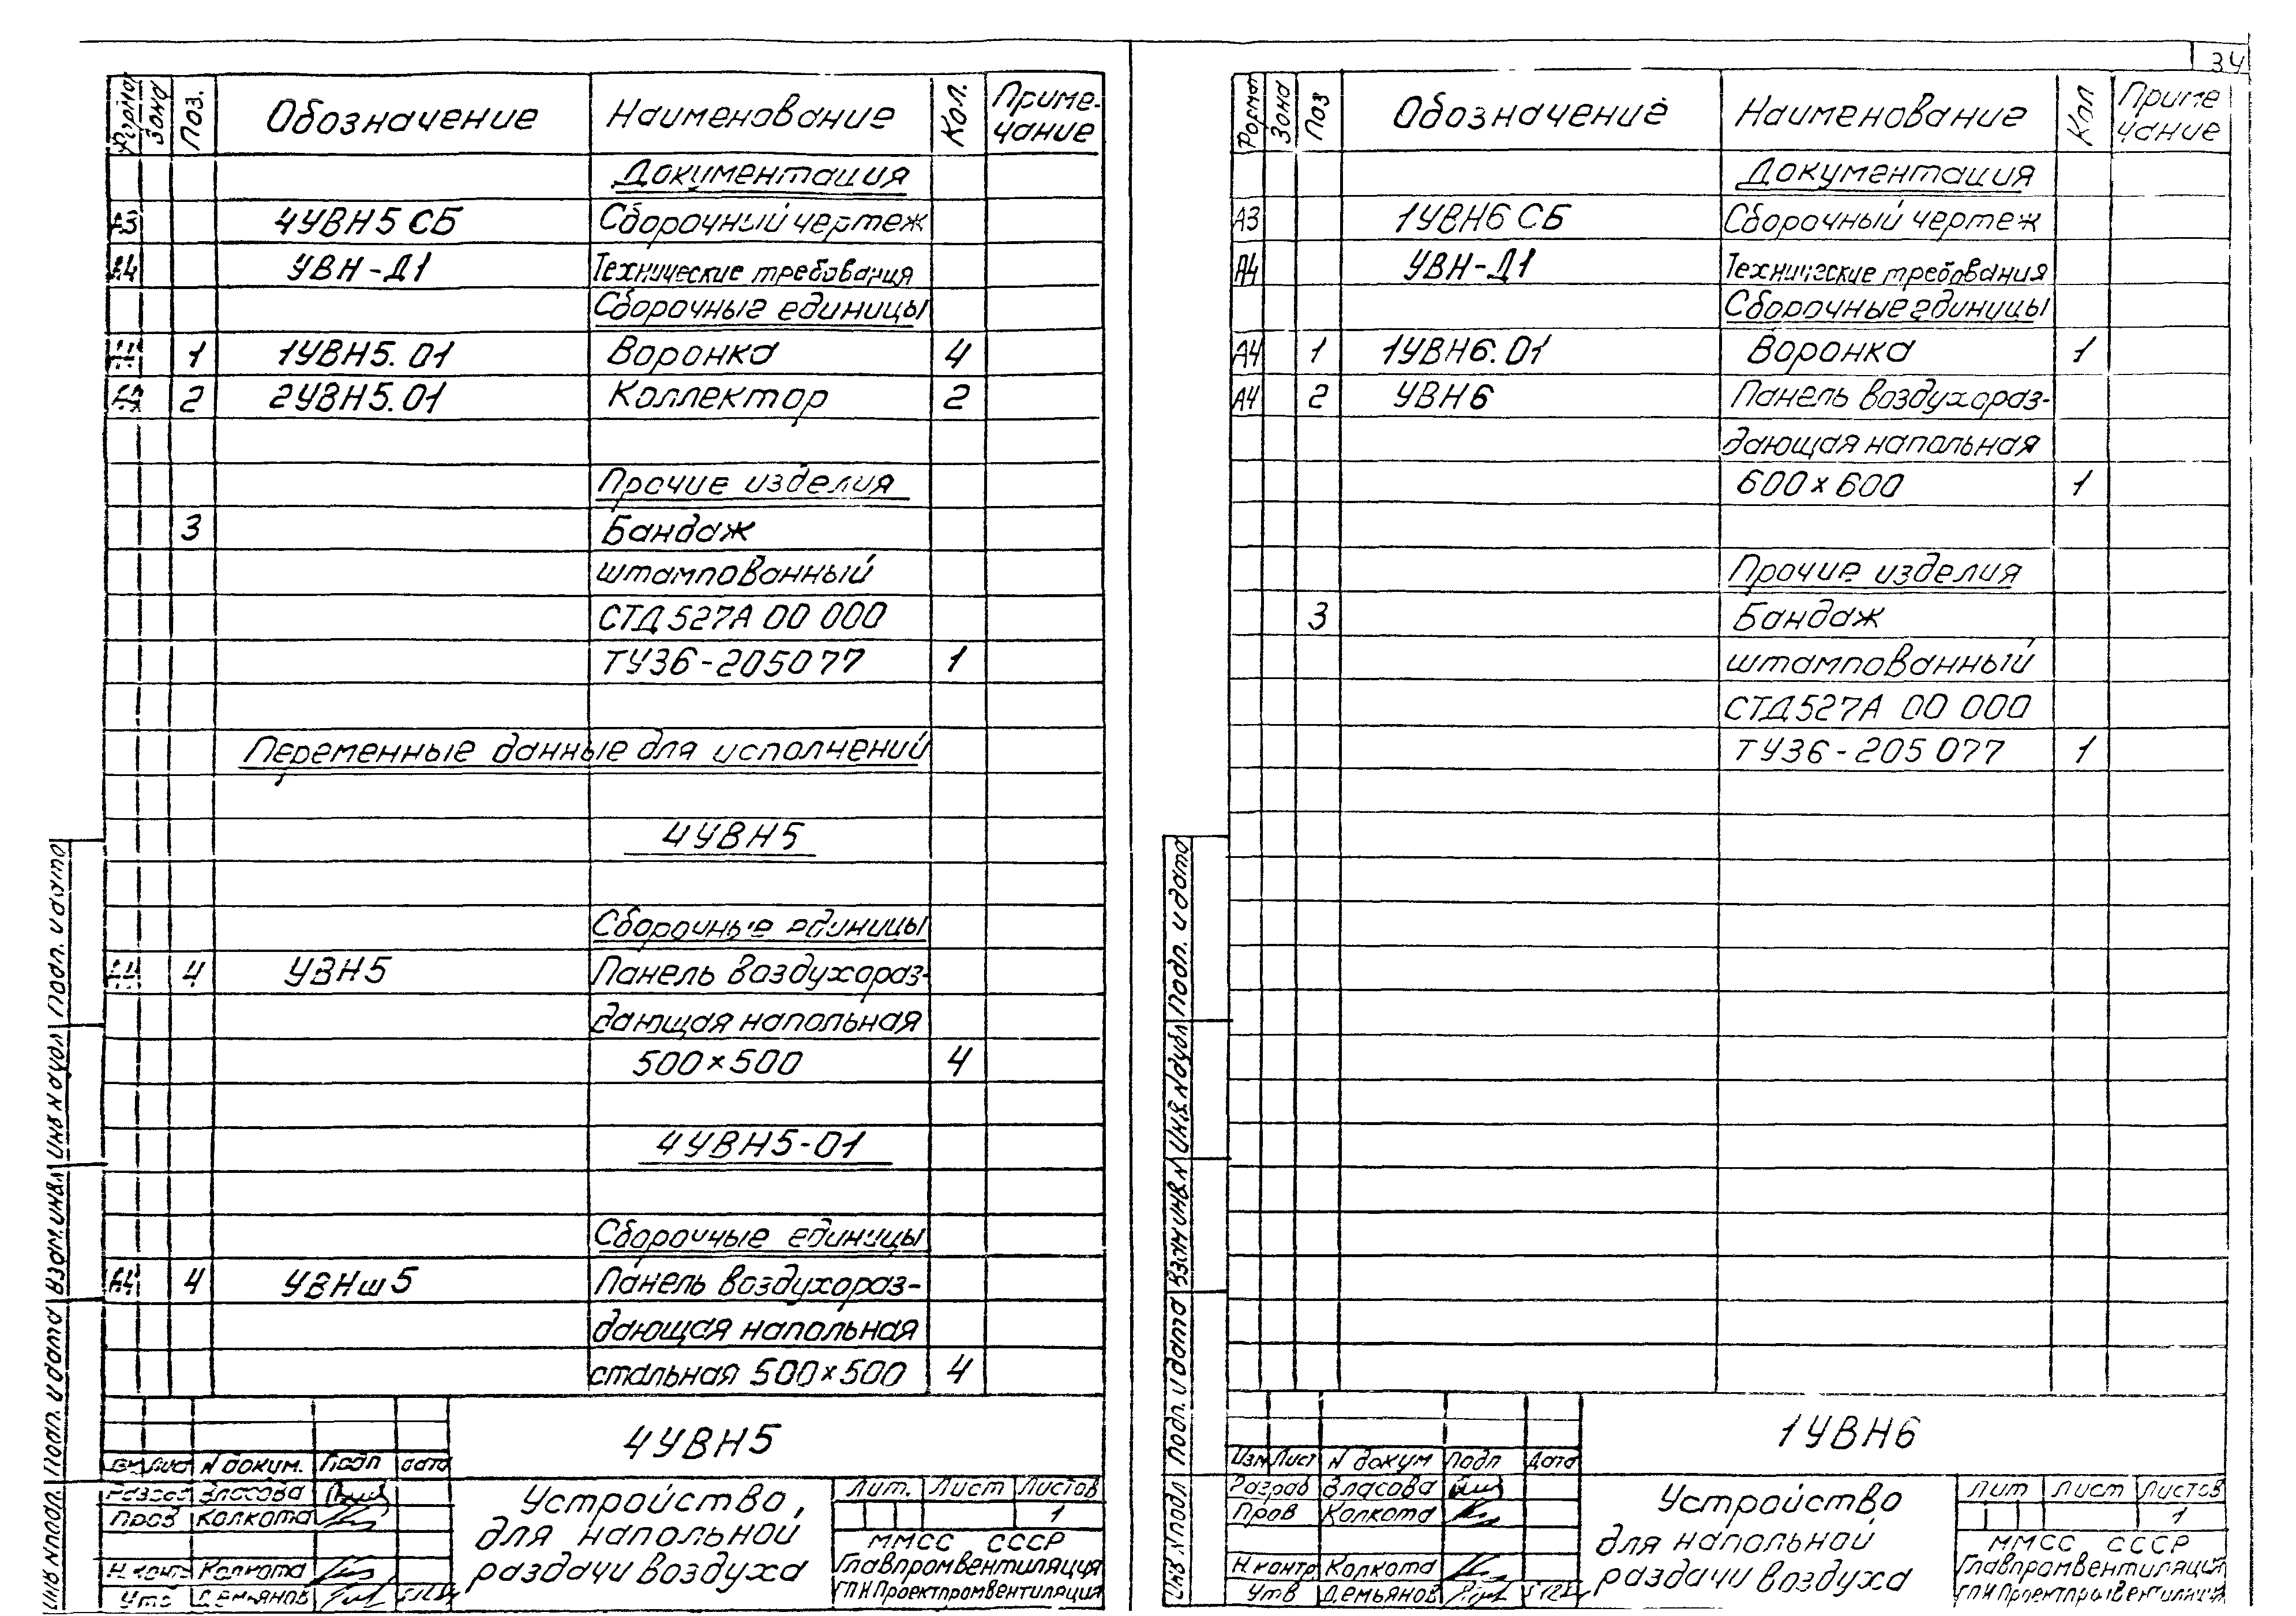 34
Формат Зона Поз. Обозначение Наименование Кол. Приме-
чание
Документация
А3 4УВН5 СБ Сборочный чертеж
А4 УВН-Д1 Технические требования
Сборочные единицы
1 1УВН5.01 Воронка 4
2 2УВН5.01 Коллектор 2
Прочие изделия
3 Бандаж
штампованный
СТД 527А 00 000
ТУ36-205077 1
Переменные данные для исполнений
4УВН5
Сборочные единицы
4 УВН5 Панель воздухораз-
дающая напольная
500×500 4
4УВН5-01
Сборочные единицы
А4 4 УВНш5 Панель воздухораз-
дающая напольная
стальная 500×500 4
4УВН5
Изм Лист N докум. Подп дата
Разраб Власова
Пров Колкота
Н.контр Колкота
Утв Демьянов
Устройство,
для напольной
раздачи воздуха
Лит. Лист Листов
1
ММСС СССР
Главпромвентиляция
ГПИ Проектпромвентиляция
Инв N подл. Подп. и дата Взам. инв. N Инв N дубл Подп. и дата
Формат Зона Поз Обозначение Наименование Кол Приме
чание
Документация
А3 1УВН6 СБ Сборочный чертеж
А4 УВН-Д1 Технические требования
Сборочные единицы
А4 1 1УВН6.01 Воронка 1
А4 2 УВН6 Панель воздухораз-
дающая напольная
600×600 1
Прочие изделия
3 Бандаж
штампованный
СТД527А 00 000
ТУ36-205 077 1
1УВН6
Изм Лист N докум Подп Дата
Разраб Власова
Пров Колкота
Н.контр Колкота
Утв Демьянов
Устройство
для напольной
раздачи воздуха
Лит Лист Листов
1
ММСС СССР
Главпромвентиляция
ГПИ Проектпромвентиляция
Инв N подл Подп. и дата Взам инв. N Инв. N дубл Подп. и дата